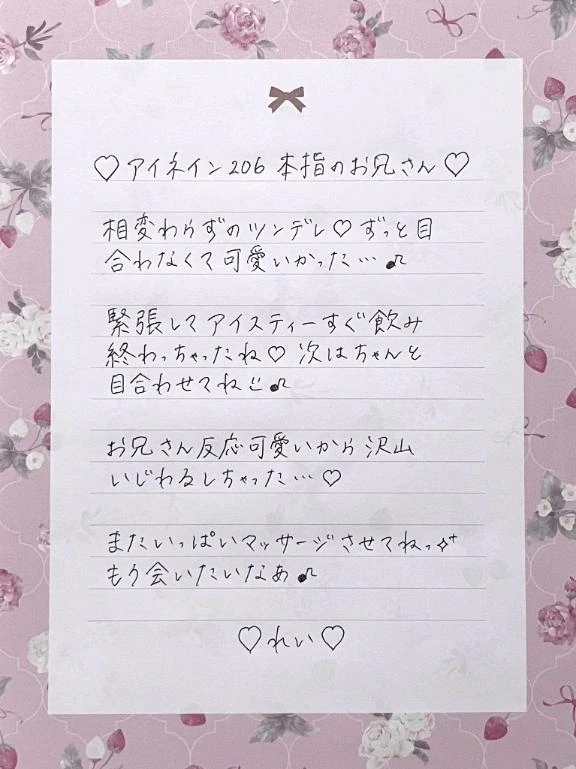 ♡アイネイン206 本指のお兄さん♡
相変わらずのツンデレ♡ずっと目
合わなくて可愛いかった…♪
緊張してアイスティーすぐ飲み
終わっちゃったね♡次はちゃんと
目合わせてね♪
お兄さん反応可愛いから沢山
いじわるしちゃった…♡
またいっぱいマッサージさせてねっ✧⁺
もう会いたいなあ♪
♡れい♡